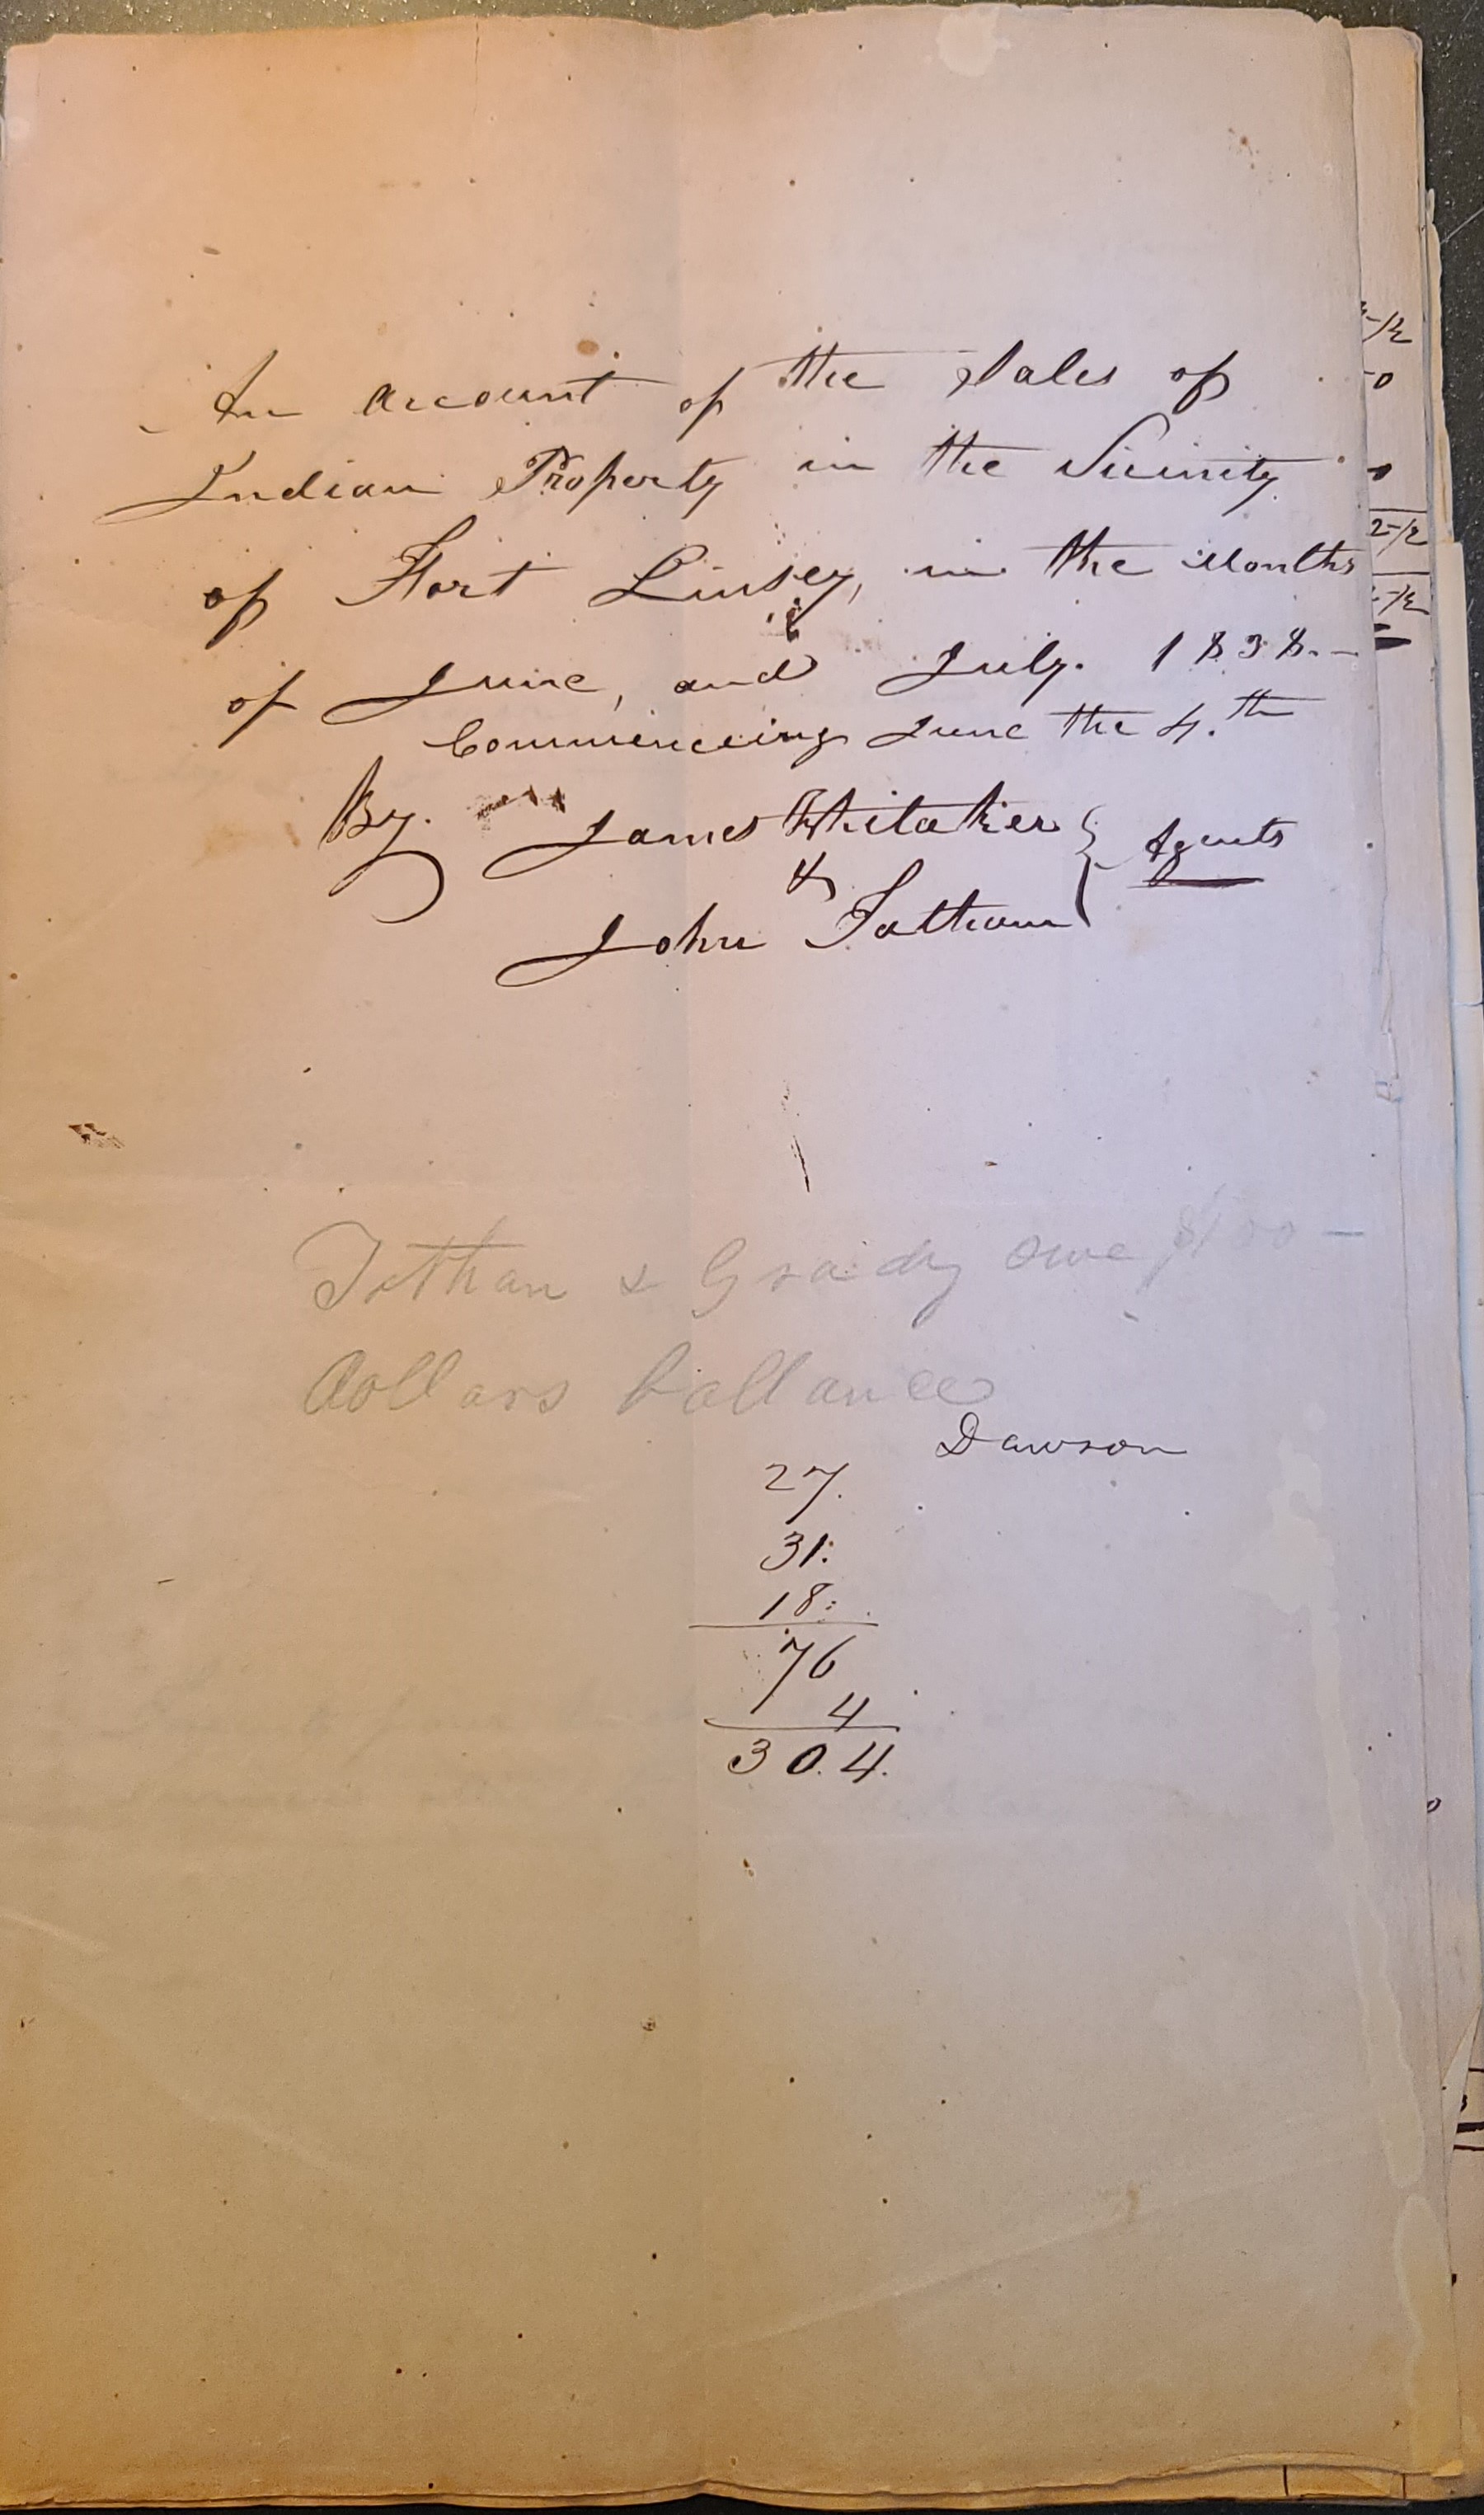 An account of the Sales of
Indian Property in the Vicinity
of Fort Linsey, in the Months
of June, and July. 1838.-
Commenceing June the 4.th
By. James Whitaker } Agents
&
John Tatham
Tathan & Grady owe $100-
dollars ballance
Dawson
27.
31:
18:
76
4
304.